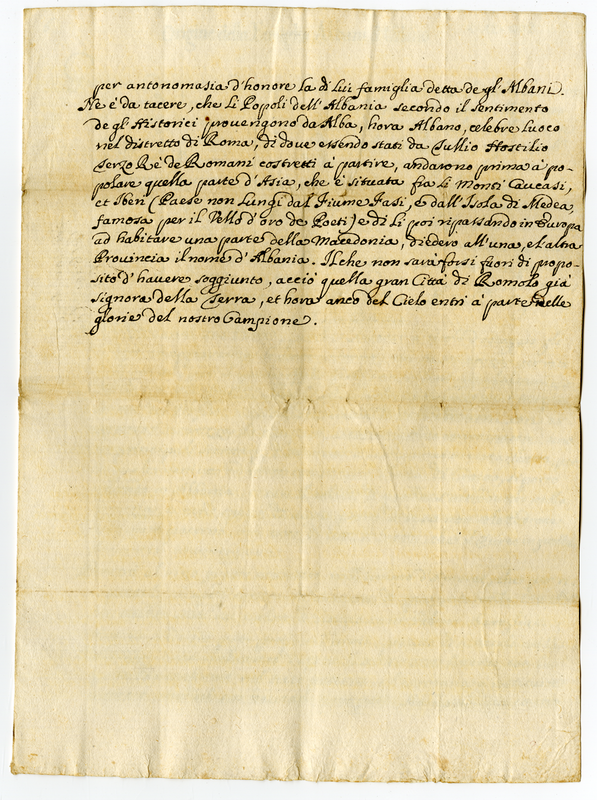 per antonomasia d'honore la di lui famiglia detta de gl'Albani.
Ne é da tacere, che li Popoli dell'Albania secondo il sentimento
de gl'Historici provengono da Alba, hora Albano, celebre luoco
nel distretto di Roma, di dove essendo stati da Tullio Hostilio
Terzo Ré de Romani costretti á partire, andarono prima á po-
polare quella parte d'Asia, che é situata fra li Monti Caucasi,
et Iberi (Paese non lungi dal Fiume Fasi, e dall'Isola di Medea,
famosa per il Vello d'oro de Poeti) e di li poi ripassando in Europa
ad habitare una parte della Macedonia, diedero all'una, et altra
Provincia il nome d'Albania. Il che non sará forsi fuori di propo-
sito d'havere soggiunto, acció quella gran Cittá di Romolo giá
signora della Terra, et hora anco del Cielo entri á parte nelle
glorie del nostro Campione.